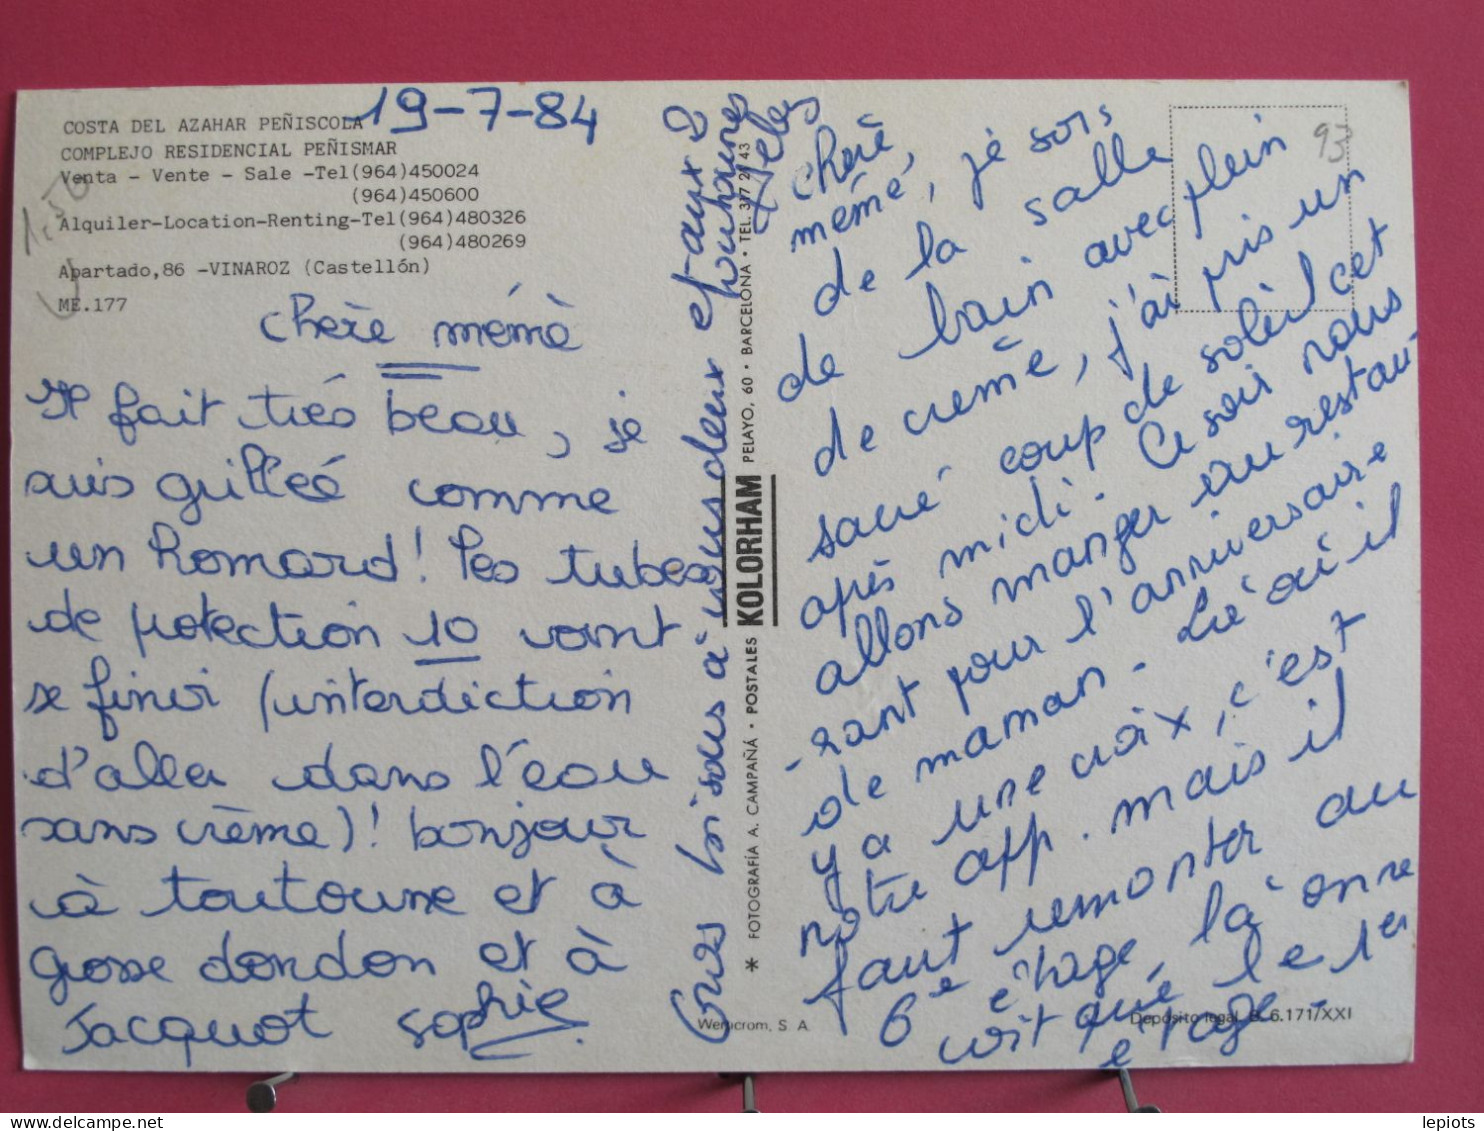 COSTA DEL AZAHAR PEÑISCOLA
COMPLEJO RESIDENCIAL PEÑISMAR
Venta - Vente - Sale -Tel(964)450024
(964)450600
Alquiler-Location-Renting-Tel(964)480326
(964)480269
Apartado,86 -VINAROZ (Castellón)
ME.177
19-7-84
1,50
chere mémè
Il fait trés beau, je
suis grilleé comme
un homard! les tubes
de protection 10 vont
se finir (interdiction
d'aller dans l'eau
sans crème)! bonjour
à toutoune et à
grosse dondon et à
Jacquot Sophie
Gros bisous à vous deux et aux 2
* FOTOGRAFÍA A. CAMPAÑÁ · POSTALES KOLORHAM PELAYO, 60 · BARCELONA · TEL. 317 2 43
Werucrom, S. A.
Depósito legal B. 6.171/XXI
93
cherè
mémé, je sors
de la salle
de bain avec plein
de creme, j'ai pris un
sacré coup de soleil cet
après midi. Ce soir nous
allons manger au restau-
-rant pour l'anniversaire
de maman - Là où il
y a une croix, c'est
notre app. mais il
faut remonter au
6e étage, là on ne
voit que le 1er
etage -